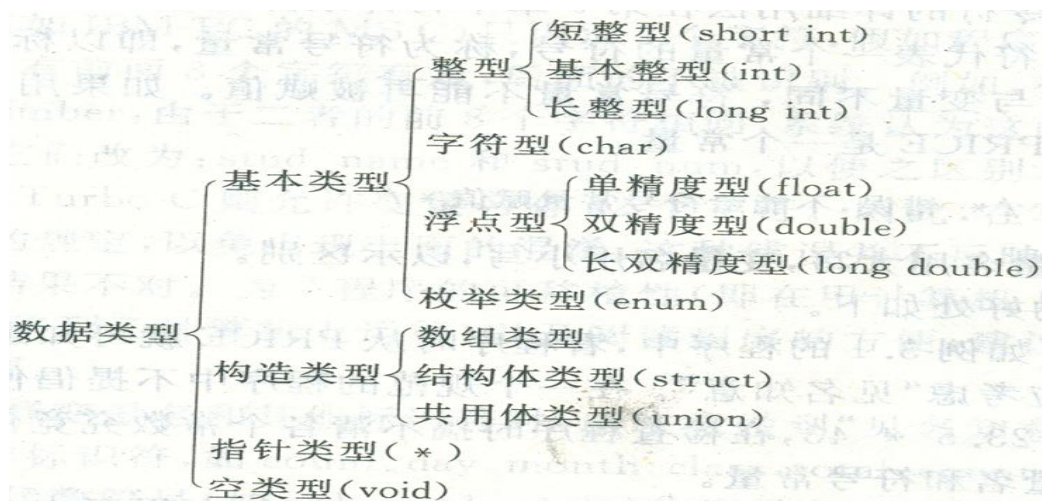 短整型(short int)
整型 基本整型(int)
长整型(long int)
字符型(char)
基本类型
单精度型(float)
浮点型 双精度型(double)
长双精度型(long double)
枚举类型(enum)
数据类型
数组类型
构造类型 结构体类型(struct)
共用体类型(union)
指针类型(*)
空类型(void)